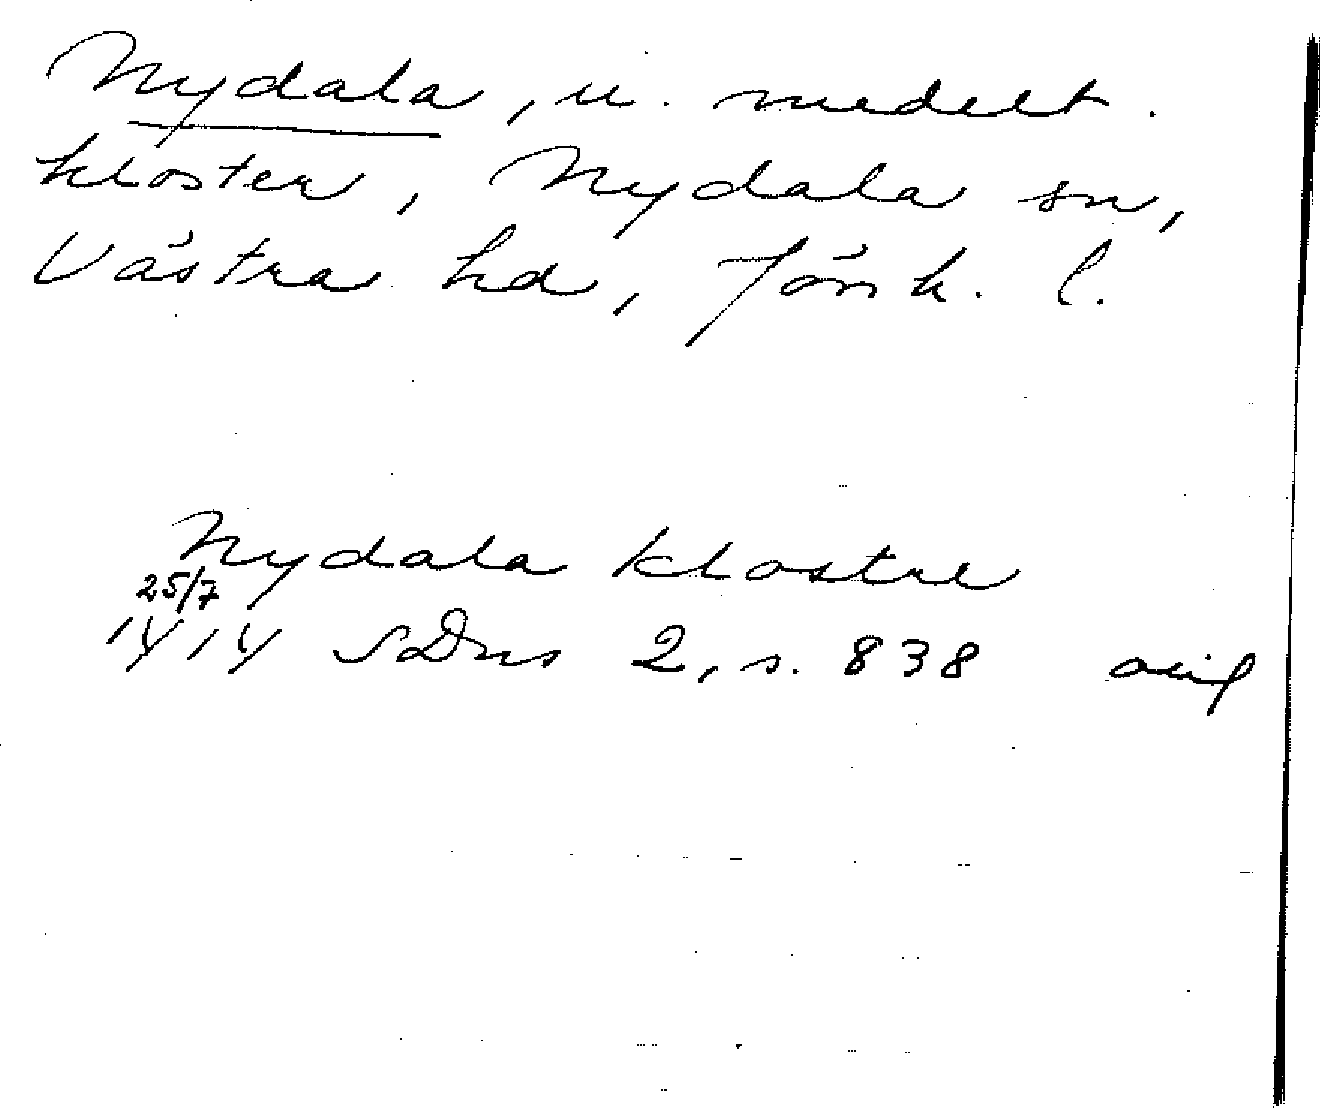 Nydala, u. medelt.
kloster, Nydala sn,
Västra hd, Jönk. l.
Nydala klostre
25/7
1414 SDns 2, s. 838 orig